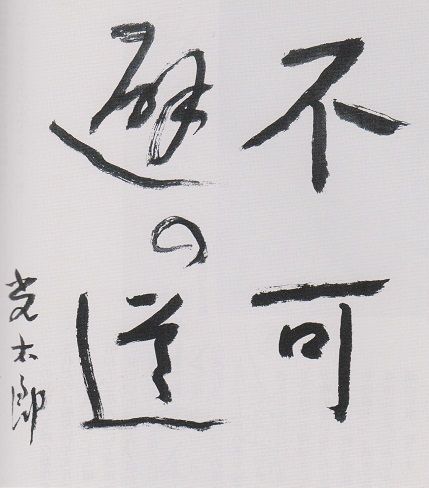 不可
避の道
光太郎